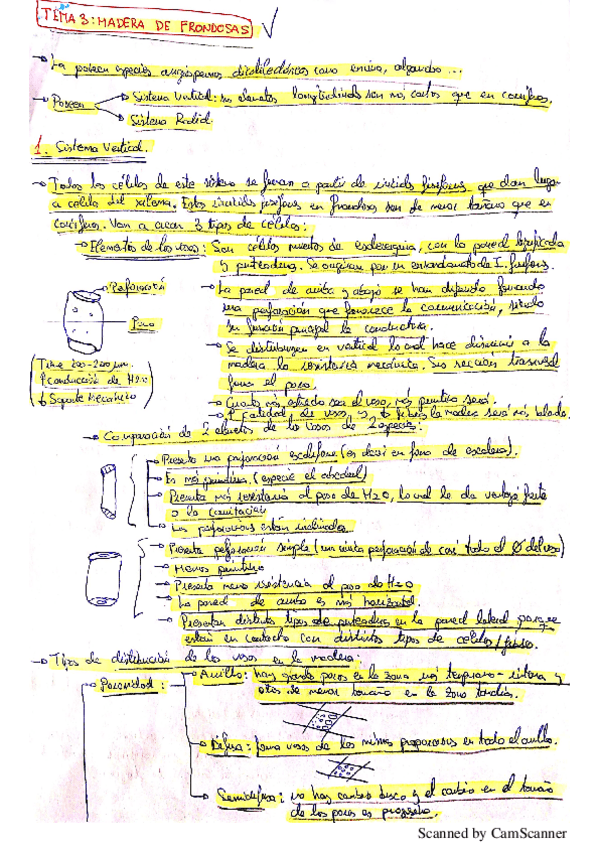 TEMA 3: MADERA DE FRONDOSAS
→ La poseen especies angiospermas dicotiledóneas como encina, algarrobo ...
→ Poseen → Sistema Vertical: sus elementos longitudinales son más cortos que en coníferas.
→ Sistema Radial.
1. Sistema Vertical.
→ Todas las células de este sistema se forman a partir de iniciales fusiformes que dan lugar
a células del xilema. Estas iniciales fusiformes en frondosas son de menor tamaño que en
coníferas. Van a crear 3 tipos de células:
→ Elementos de los vasos: Son células muertas de esclerenquima, con la pared lignificada
y punteaduras. Se originan por un ensanchamiento de I. fusiforme.
→ Perforación
→ Pared
→ La pared de arriba y abajo se han disuelto formando
una perforación que favorece la comunicación, siendo
su función principal la conductora.
→ Se distribuyen en vertical lo cual hace disminuir a la
madera la resistencia mecánica. Sus sección transversal
forma el poro.
Tiene 200-200 µm.
↑ conducción de H2O
↓ Soporte Mecánico
→ Cuanto más estrecho sea el vaso, más primitivo será.
→ ↑ cantidad de vasos y ↓ fibras la madera será más blanda.
→ Comparación de 2 elementos de los vasos de 2 especies:
→ Presenta una perforación escaliforme (es decir en forma de escalera).
→ Es más primitiva. (especie el abedul)
→ Presenta más resistencia al paso de H2O, lo cual le da ventaja frente
a la cavitación
→ Las perforaciones están inclinadas
→ Presenta perforación simple (una única perforación de casi todo el Ø del vaso)
→ Menos primitivo
→ Presenta menos resistencia al paso de H2O
→ La pared de arriba es más horizontal.
→ Presentan distintos tipos de punteaduras en la pared lateral porque
están en contacto con distintos tipos de células/fibras.
→ Tipos de distribución de los vasos en la madera:
→ Porosidad: → Anillo: hay grandes poros en la zona más temprana - interna y
otros de menor tamaño en la zona tardía.
→ Difusa: forma vasos de las mismas proporciones en todo el anillo.
→ Semidifusa: no hay cambio brusco y el cambio en el tamaño
de los poros es progresivo.
Scanned by CamScanner